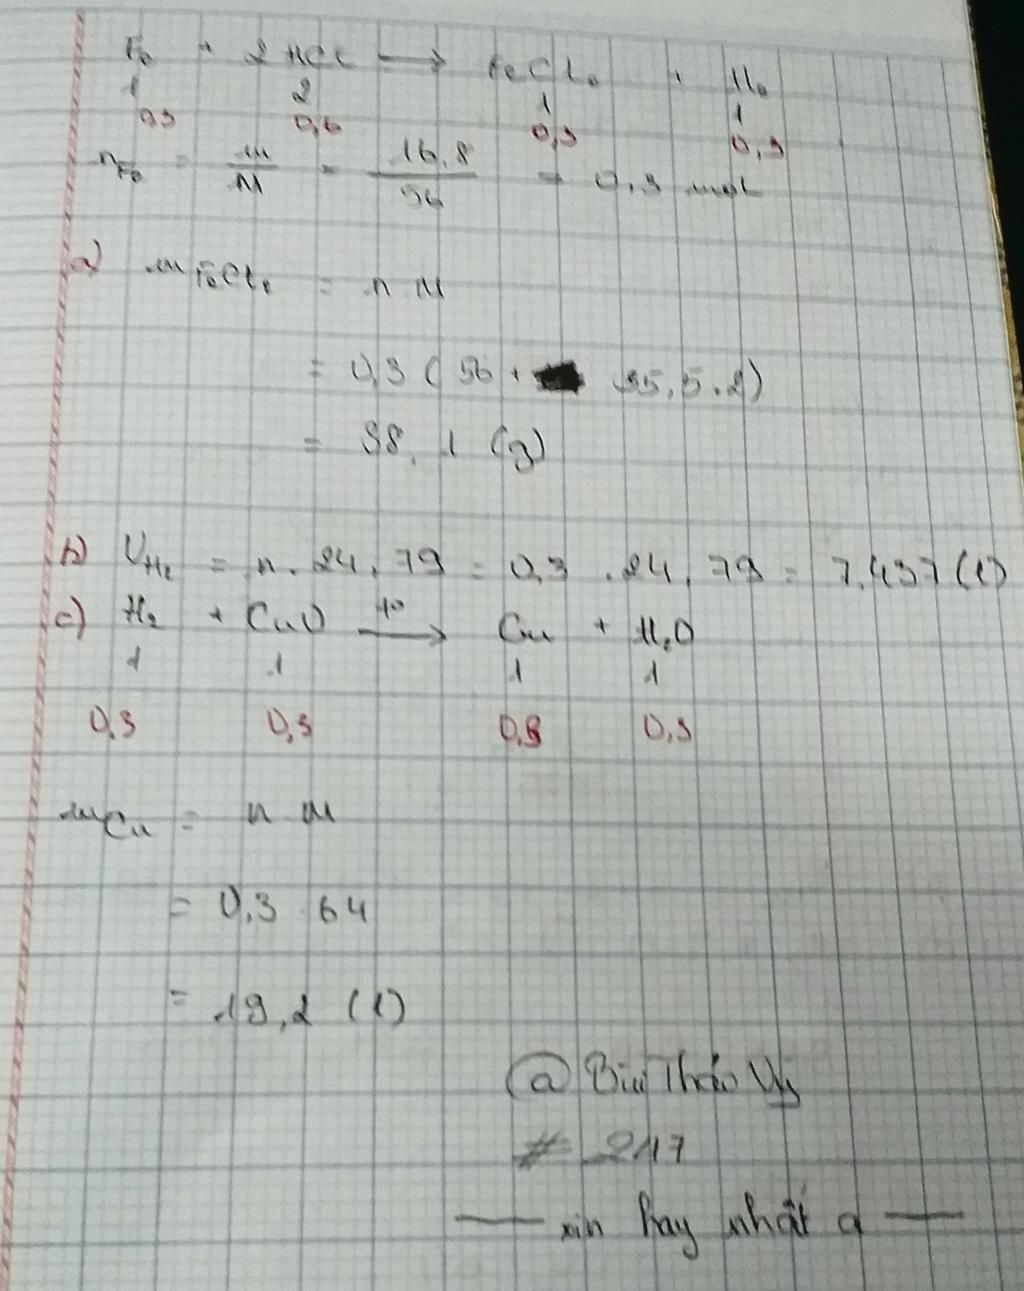 Fe + 2HCl → FeCl₂ + H₂
1 2 1 1
0,3 0,6 0,3 0,3
nFe = m/M = 16,8/56 = 0,3 mol
a) mFeCl₂ = n.M
= 0,3 (56 + 35,5.2)
= 38,1 (g)
b) VH₂ = n.24,79 = 0,3.24,79 = 7,437 (l)
c) H₂ + CuO t° → Cu + H₂O
1 1 1 1
0,3 0,3 0,3 0,3
mCu = n.M
= 0,3 64
= 19,2 (l)
@ Bùi Thảo Vy
# 2117
— xin hay nhất ạ —